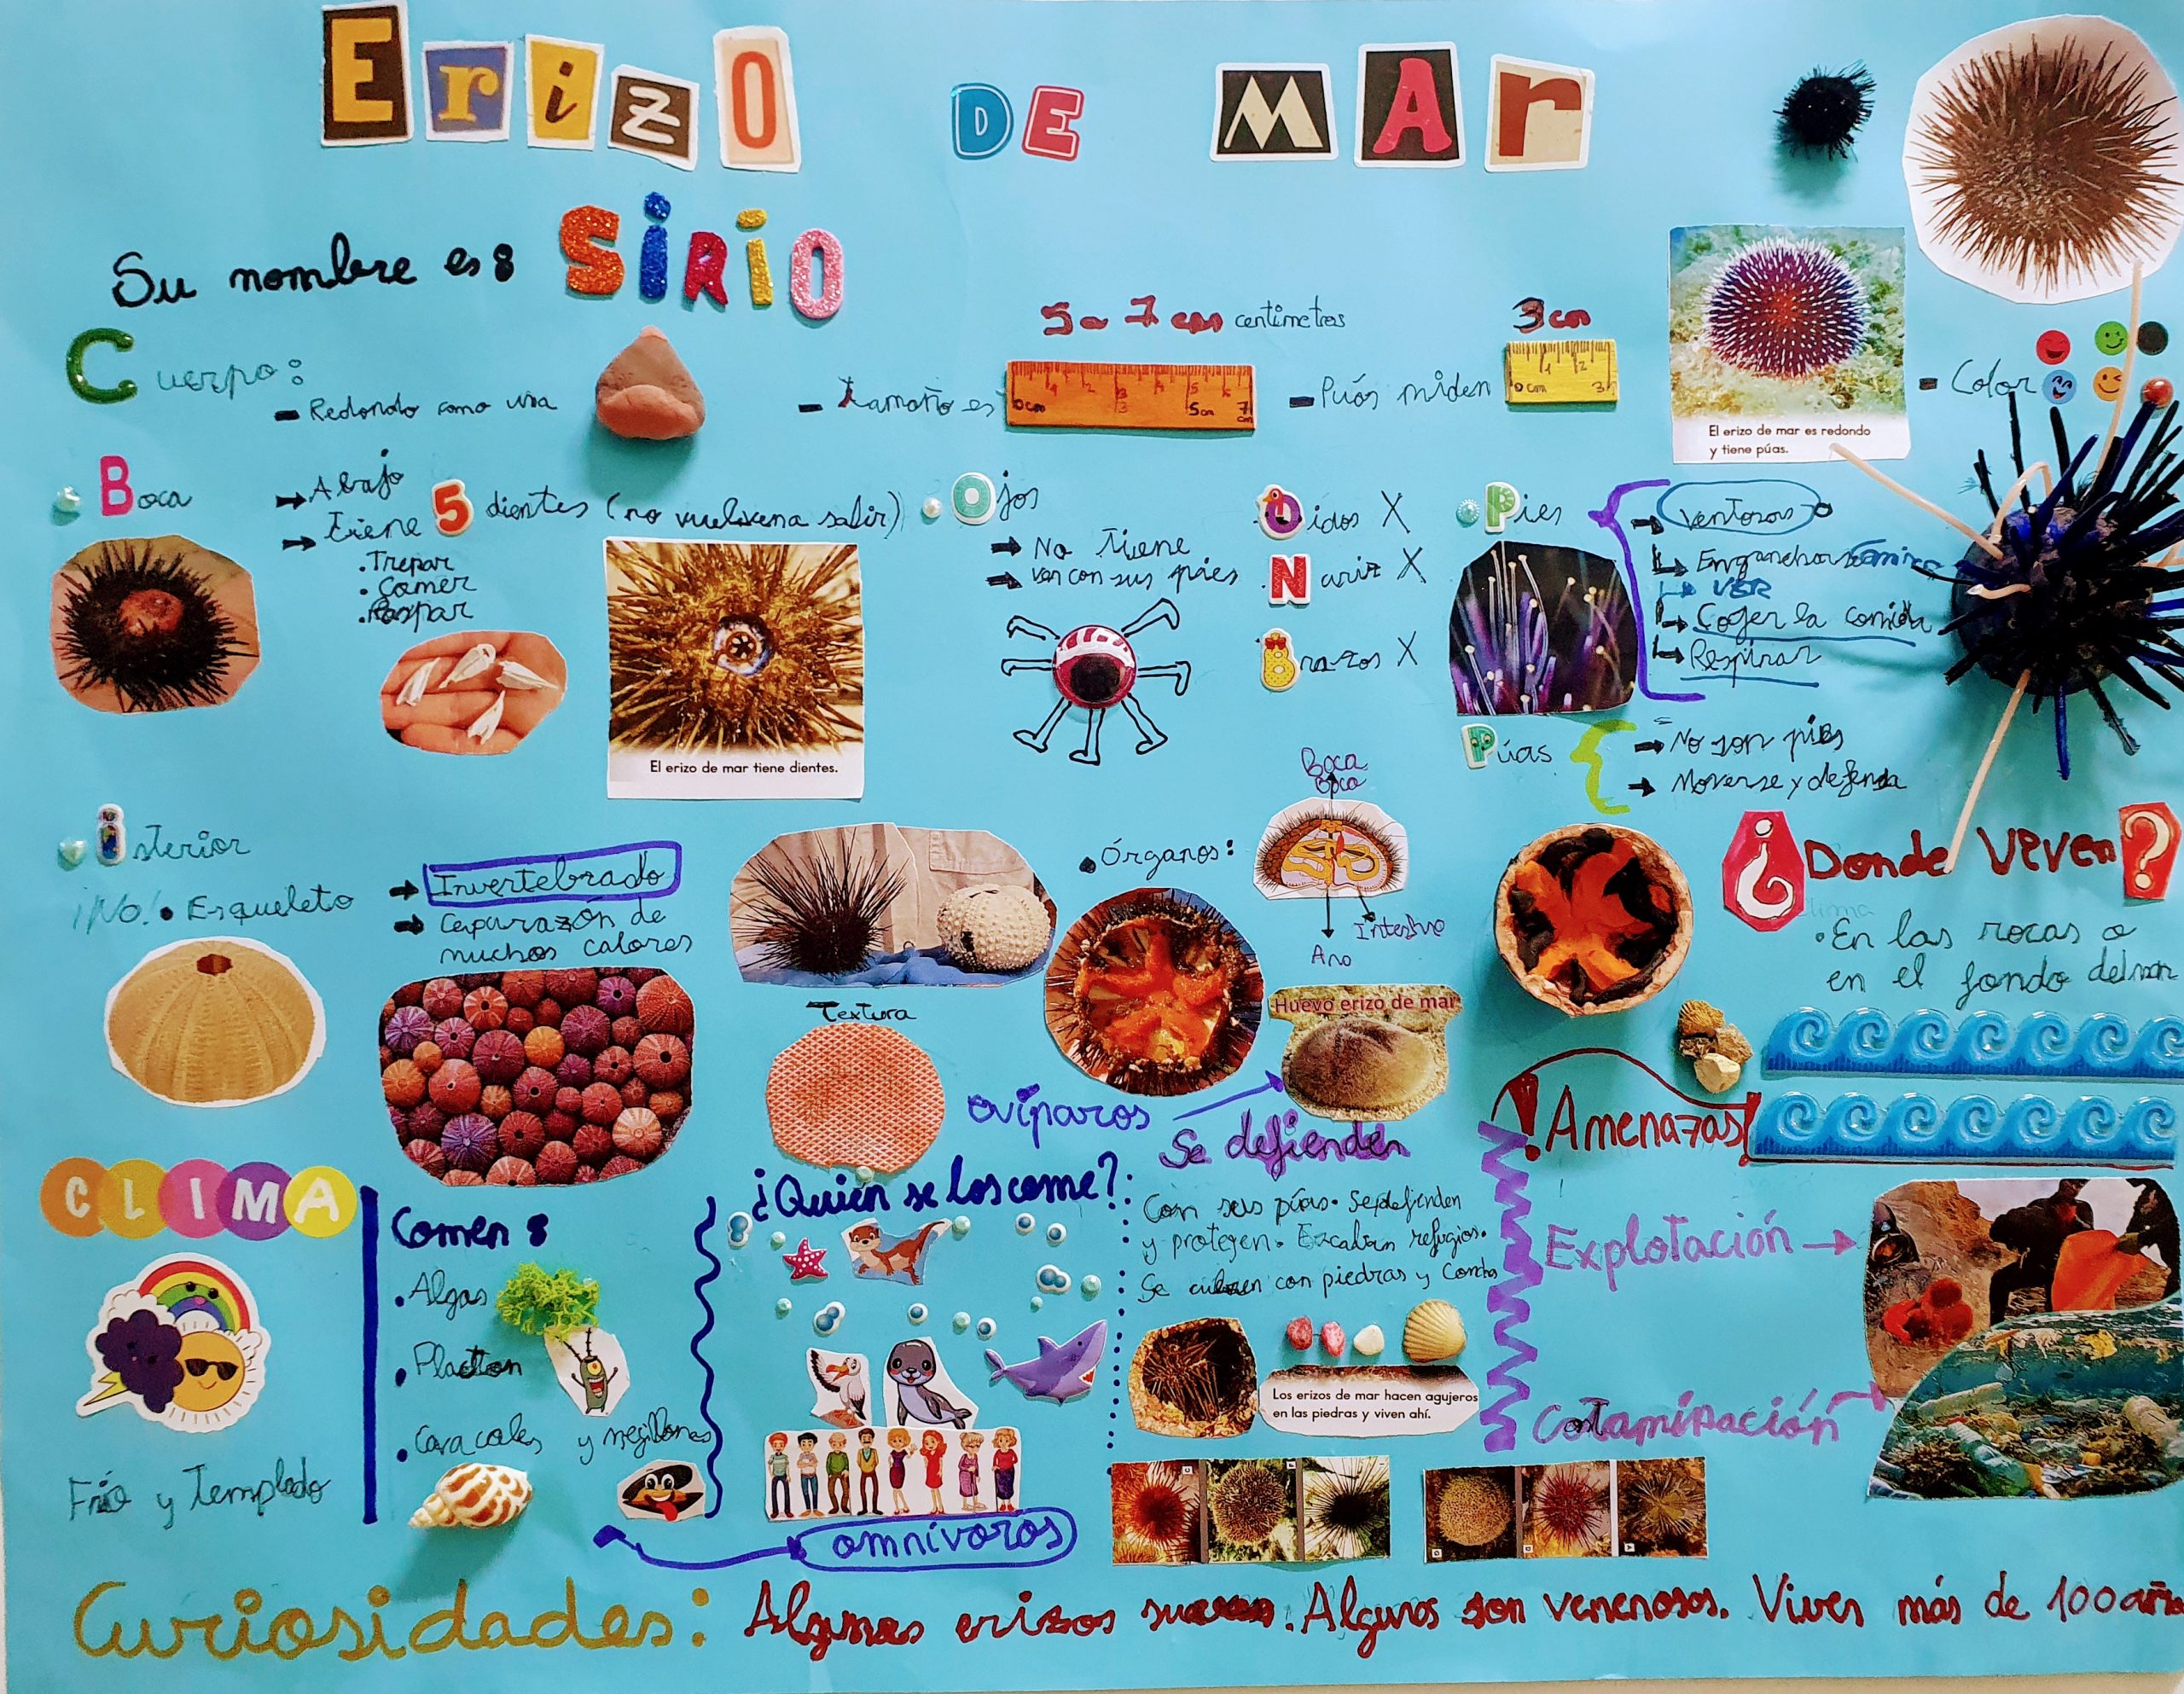 Erizo DE MAr
Su nombre es: SIRIO
5 a 7 cm centimetros
3 cm
Cuerpo:
- Redondo como una
- tamaño es
- Púas miden
- Color
El erizo de mar es redondo
y tiene púas.
Boca
→ Abajo
→ tiene 5 dientes (no vuelven a salir)
. Trepar
. Comer
. Raspar
El erizo de mar tiene dientes.
Ojos
→ No tiene
→ ven con sus pies
Oidos X
Nariz X
Brazos X
Pies
→ Ventosas
→ Engancharse
→ VER
→ Coger la comida
→ Respirar
Púas
→ No son pies
→ Moverse y defensa
isterior
¡No! . Esqueleto
→ Invertebrado
→ Caparazón de
muchos colores
Textura
. Órganos:
Boca
Boca
Intestino
Ano
Huevo erizo de mar
ovíparos
¿Donde Viven?
. En las rocas o
en el fondo del mar
CLIMA
Frío y Templado
Comen:
. Algas
. Placton
. Caracoles y megillones
¿Quién se los come?:
omnívoros
Se defienden
Con sus púas. Se defienden
y protegen. Excaban refugios.
Se cubren con piedras y Conchas
Los erizos de mar hacen agujeros
en las piedras y viven ahí.
! Amenazas
Explotación →
Contaminación
Curiosidades: Algunos erizos. Algunos son venenosos. Viven más de 100 años